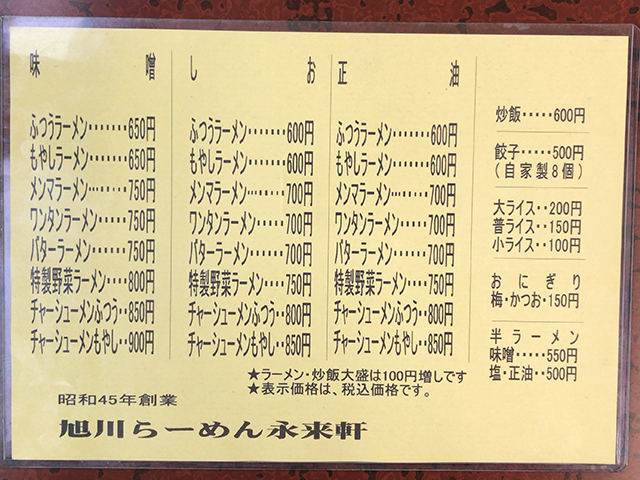 味噌
ふつうラーメン・・・・・・・650円
もやしラーメン・・・・・・・650円
メンマラーメン・・・・・・・750円
ワンタンラーメン・・・・・750円
バターラーメン・・・・・・・750円
特製野菜ラーメン・・・・800円
チャーシューメンふつう・・850円
チャーシューメンもやし・・900円
しお
ふつうラーメン・・・・・・・600円
もやしラーメン・・・・・・・600円
メンマラーメン・・・・・・・700円
ワンタンラーメン・・・・・700円
バターラーメン・・・・・・・700円
特製野菜ラーメン・・・・750円
チャーシューメンふつう・・800円
チャーシューメンもやし・・850円
正油
ふつうラーメン・・・・・・・600円
もやしラーメン・・・・・・・600円
メンマラーメン・・・・・・・700円
ワンタンラーメン・・・・・700円
バターラーメン・・・・・・・700円
特製野菜ラーメン・・・・750円
チャーシューメンふつう・・800円
チャーシューメンもやし・・850円
炒飯・・・・・600円
餃子・・・・・500円
(自家製8個)
大ライス・・200円
普ライス・・150円
小ライス・・100円
おにぎり
梅・かつお・150円
半ラーメン
味噌・・・・550円
塩・正油・・500円
★ラーメン・炒飯大盛は100円増しです
★表示価格は、税込価格です。
昭和45年創業
旭川らーめん永来軒